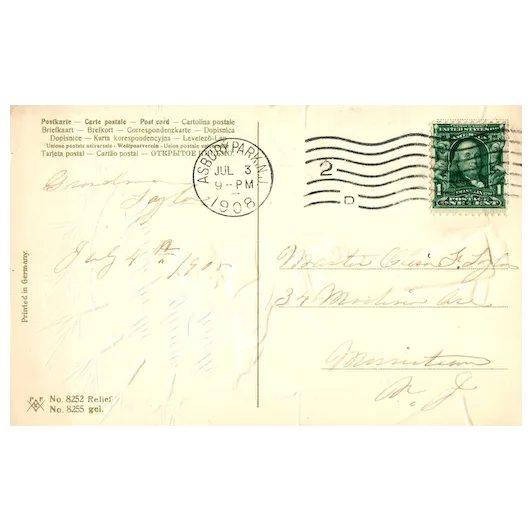 Postkarte — Carte postale — Post card — Cartolina postale
Briefkaart — Brefkort — Correspondenzkarte — Dopisnica
Dopisnice — Karta korespondencyjna — Levelező-Lap
Unions postale universelle — Weltpostverein — Union postale
Tarjeta postal — Cartão postal — ОТКРЫТОЕ
ASBURY PARK, N.J.
JUL 3
9-PM
1908
2
D
UNITED STATES OF AMERICA
1 FRANKLIN 1
POSTAGE
ONE CENT
Taylor
July 4th
Master F. Taylor
34 Ave
Morristown
N. J.
Printed in Germany.
P. P.
No. 8252 Relief
No. 8255 gel.